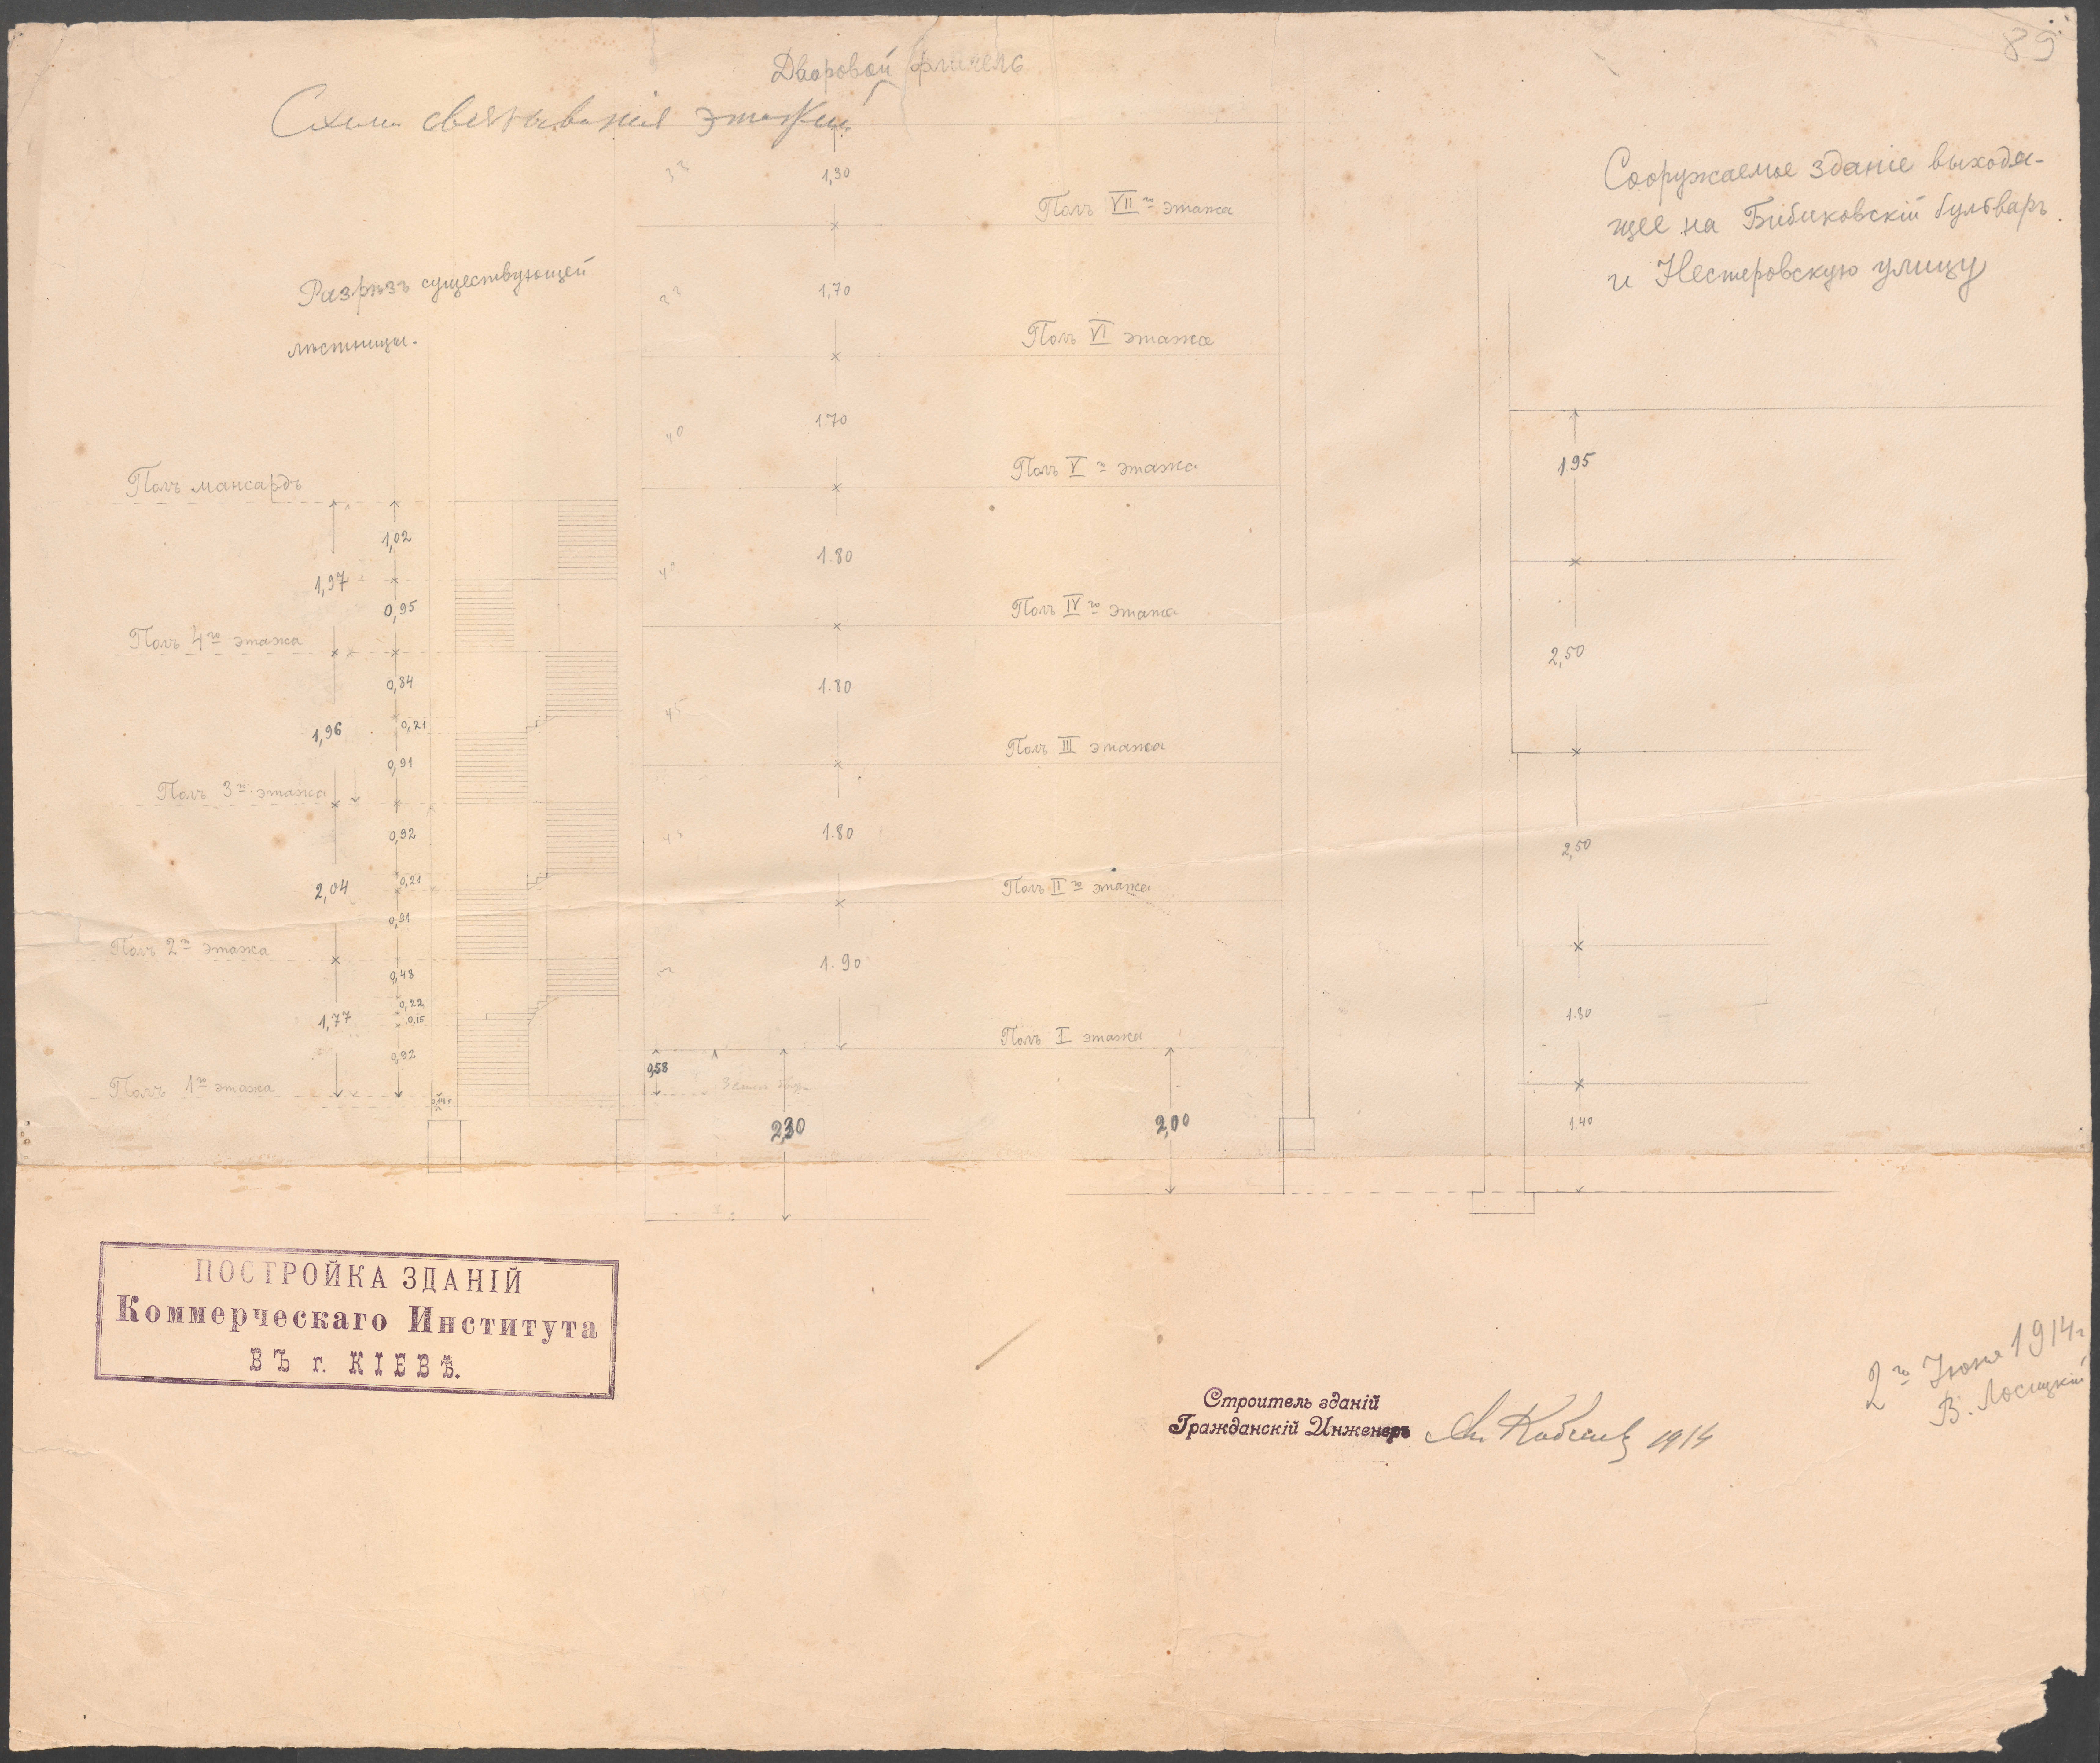 89
Дворовой флигель
Схема связыванія этажей
Сооружаемое зданіе выходя-
щее на Бибиковскій бульваръ
и Нестеровскую улицу
Разрѣзъ существующей
лѣстницы.
33
1,30
Полъ VII го этажа
33
1,70
Полъ VI этажа
40
1.70
Полъ V го этажа
1.95
Полъ мансардъ
1,02
1,97
0,95
40
1.80
Полъ IV го этажа
Полъ 4 го этажа
2,50
0,84
45
1.80
1,96
0,21
0,91
Полъ III этажа
Полъ 3 го этажа
0,92
1.80
2,50
2,04
0,21
Полъ II го этажа
0,91
Полъ 2 го этажа
0,48
1.90
0,22
1,77
0,15
1.80
0,92
Полъ I этажа
0,58
Полъ 1 го этажа
0,14
2,30
2,00
1.40
ПОСТРОЙКА ЗДАНІЙ
Коммерческаго Института
ВЪ г. КІЕВѢ.
Строитель зданій
Гражданскій Инженеръ
1914
2 го Іюня 1914 г
В. Лосицкій